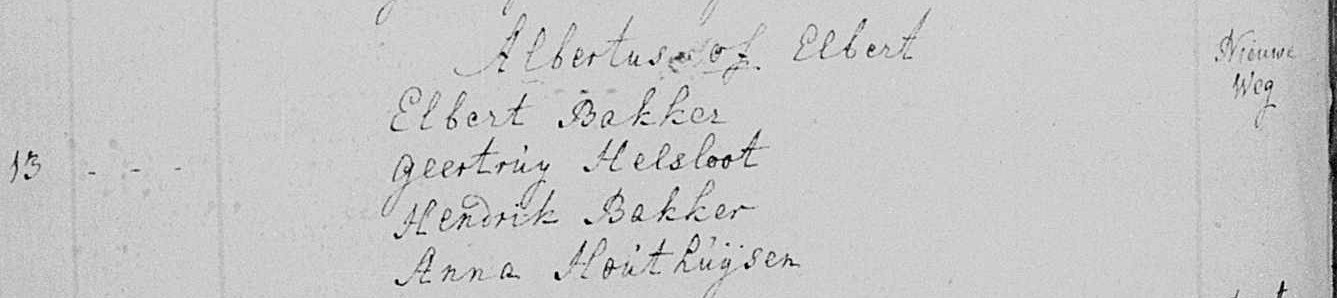 Albertus of Elbert
Nieuwe
Weg
Elbert Bakker
13 - - - geertrúy Helsloot
Hendrik Bakker
Anna Hoúthúijsen